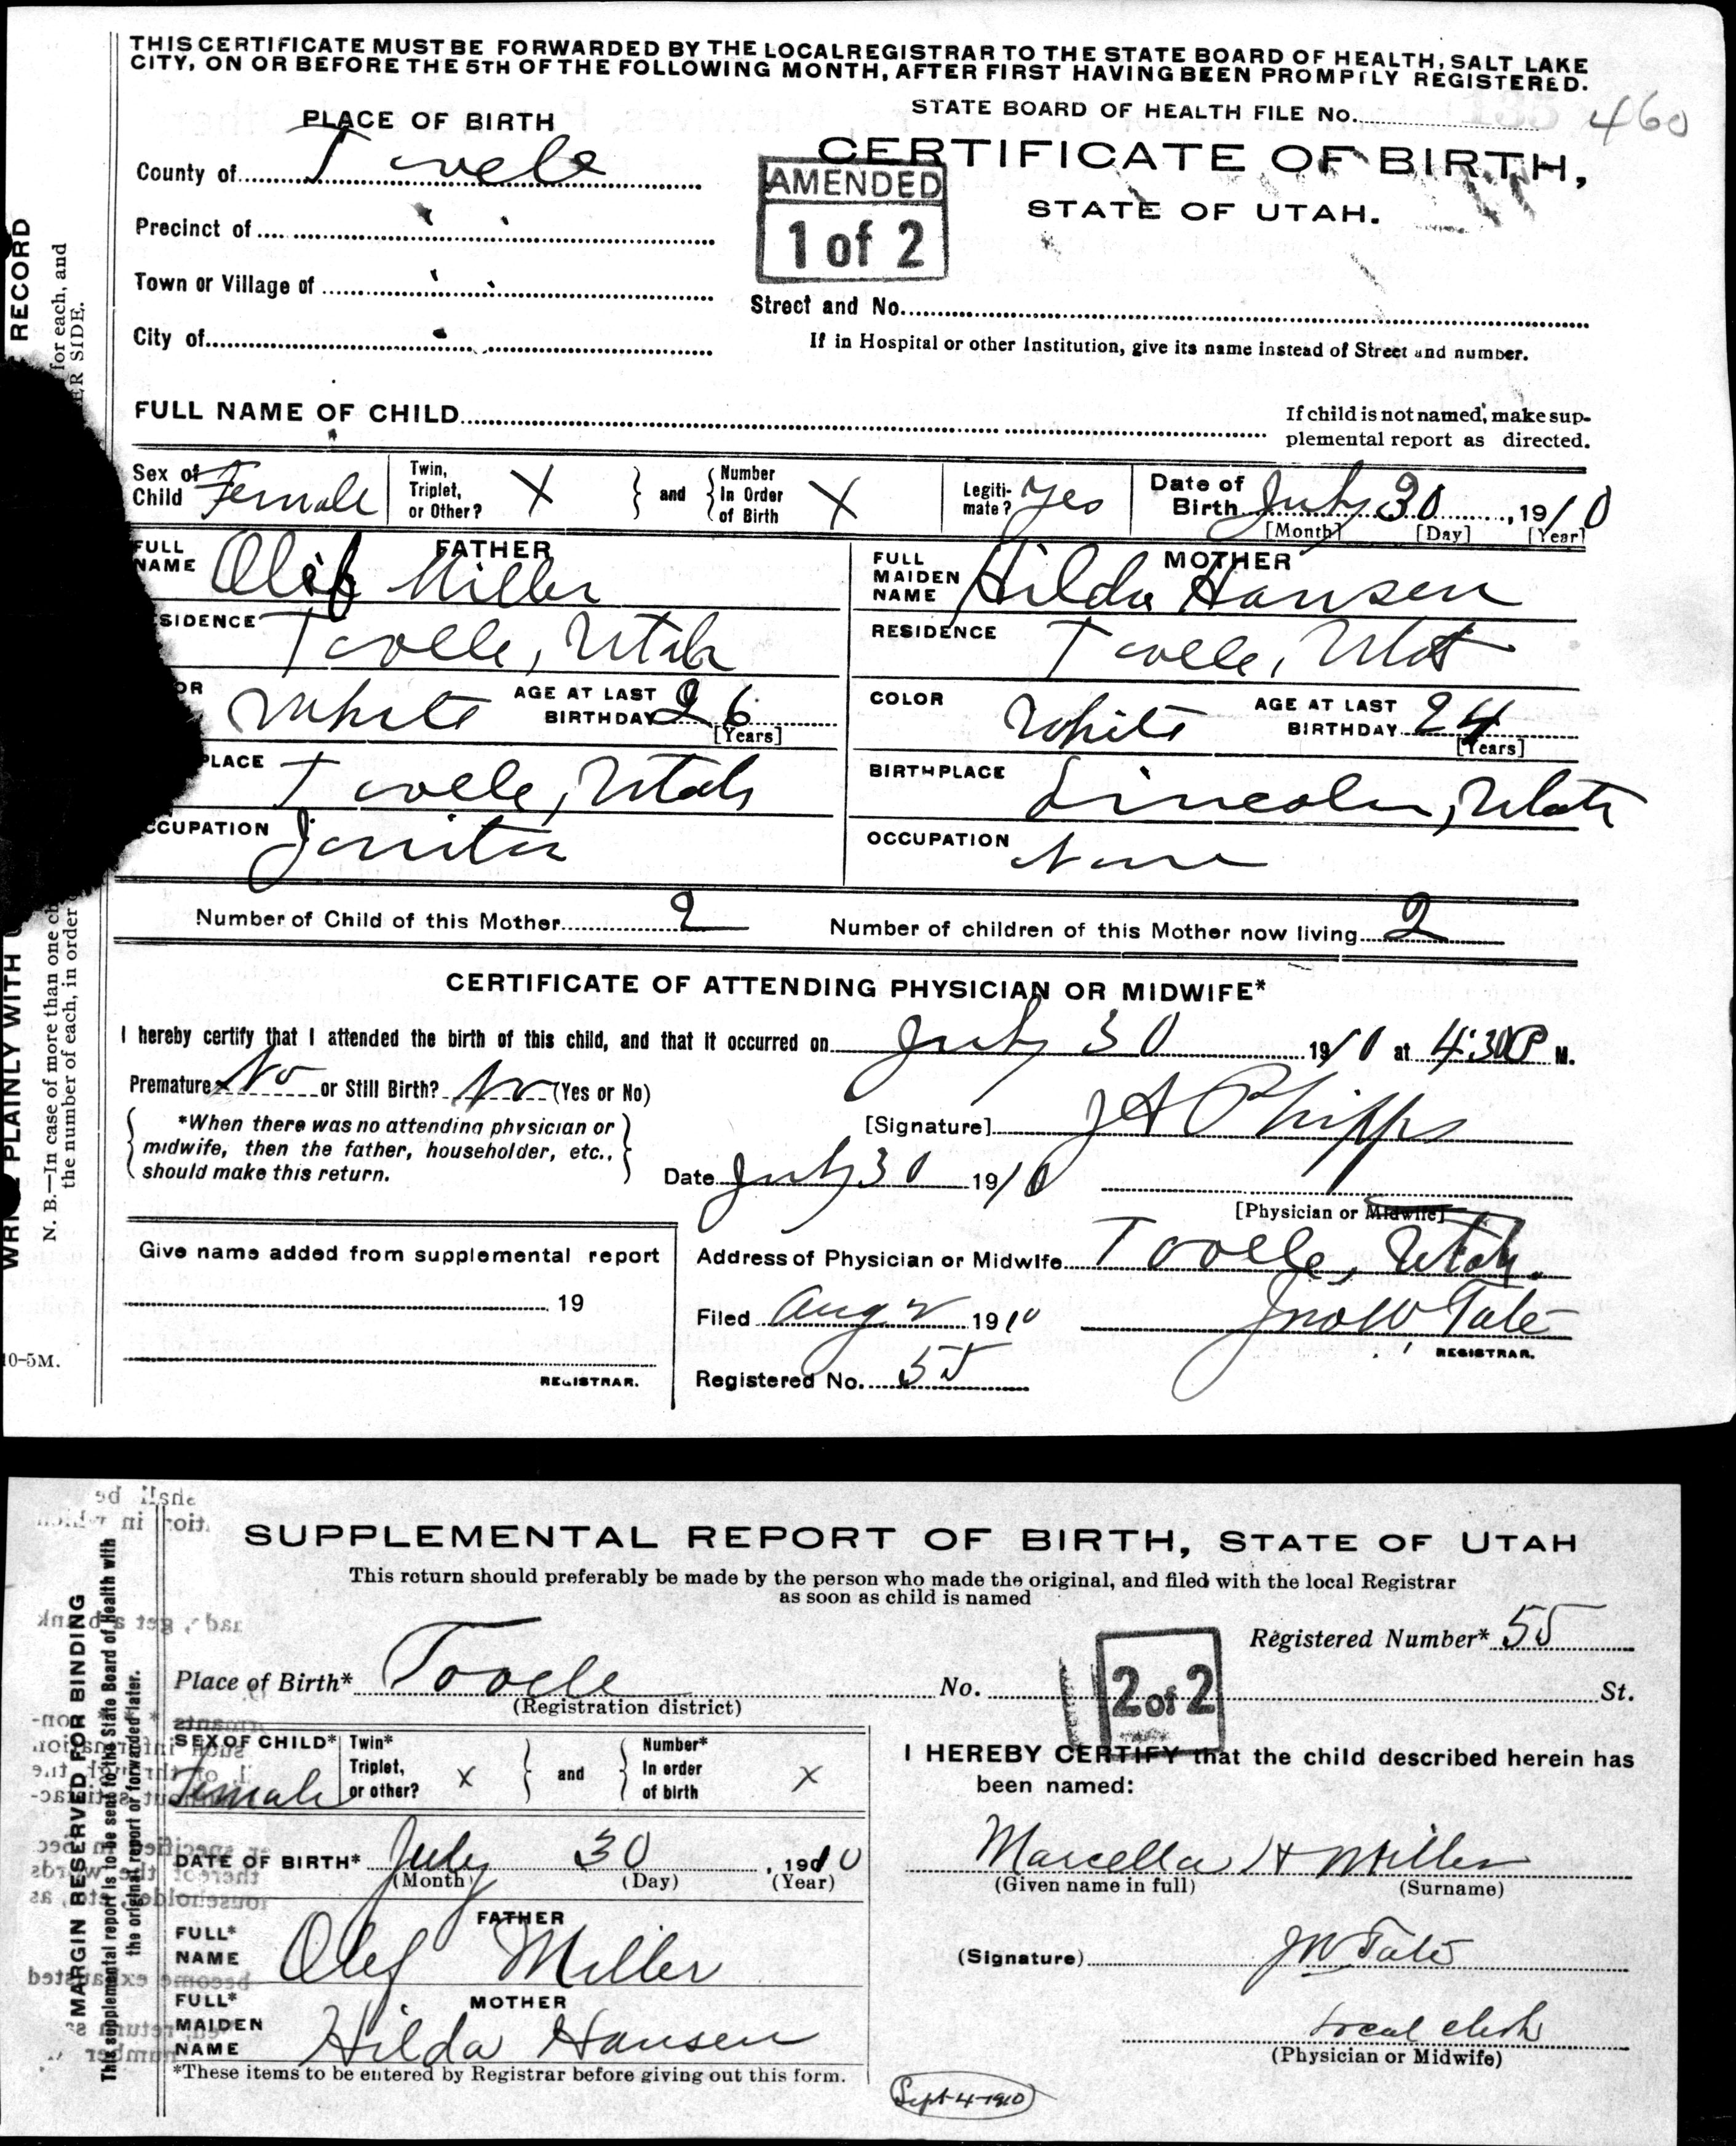 THIS CERTIFICATE MUST BE FORWARDED BY THE LOCAL REGISTRAR TO THE STATE BOARD OF HEALTH, SALT LAKE
CITY, ON OR BEFORE THE 5TH OF THE FOLLOWING MONTH, AFTER FIRST HAVING BEEN PROMPTLY REGISTERED.
STATE BOARD OF HEALTH FILE No. 460
PLACE OF BIRTH
CERTIFICATE OF BIRTH,
STATE OF UTAH.
AMENDED
1 of 2
County of Tooele
Precinct of
Town or Village of
Street and No.
City of
If in Hospital or other Institution, give its name instead of Street and number.
FULL NAME OF CHILD
If child is not named, make sup-
plemental report as directed.
Sex of Child Female
Twin, Triplet, or Other? X
and
Number In Order of Birth X
Legiti-mate? Yes
Date of Birth July 30, 1910
[Month] [Day] [Year]
FATHER
FULL NAME Olef Miller
RESIDENCE Tooele, Utah
OR White AGE AT LAST BIRTHDAY 26
[Years]
PLACE Tooele, Utah
CCUPATION Janitor
MOTHER
FULL MAIDEN NAME Hilda Hansen
RESIDENCE Tooele, Utah
COLOR White AGE AT LAST BIRTHDAY 24
[Years]
BIRTHPLACE Lincoln, Utah
OCCUPATION None
Number of Child of this Mother 2
Number of children of this Mother now living 2
CERTIFICATE OF ATTENDING PHYSICIAN OR MIDWIFE*
I hereby certify that I attended the birth of this child, and that it occurred on July 30 1910 at 4:30 P M.
Premature No or Still Birth? No (Yes or No)
*When there was no attending physician or
midwife, then the father, householder, etc.,
should make this return.
[Signature] J A Phipps
Date July 30 1910
[Physician or Midwife]
Address of Physician or Midwife Tooele, Utah.
Give name added from supplemental report
19
REGISTRAR.
Filed Aug 2 1910
Jno W Tate
REGISTRAR.
Registered No. 55
RECORD
for each, and
ER SIDE.
PLAINLY WITH
N. B.—In case of more than one
the number of each, in order
10-5M.
SUPPLEMENTAL REPORT OF BIRTH, STATE OF UTAH
This return should preferably be made by the person who made the original, and filed with the local Registrar
as soon as child is named
Registered Number* 55
Place of Birth* Tooele No. St.
(Registration district)
2 of 2
SEX OF CHILD* Female
Twin* Triplet, or other? X
and
Number* In order of birth X
DATE OF BIRTH* July 30, 1910
(Month) (Day) (Year)
FATHER
FULL* NAME Olef Miller
MOTHER
FULL* MAIDEN NAME Hilda Hansen
*These items to be entered by Registrar before giving out this form.
I HEREBY CERTIFY that the child described herein has
been named:
Marcella H Miller
(Given name in full) (Surname)
(Signature) JW Tate
Local clerk
(Physician or Midwife)
Sept-4-1910
MARGIN RESERVED FOR BINDING
This supplemental report is to be sent to the State Board of Health with
the original report or forwarded later.